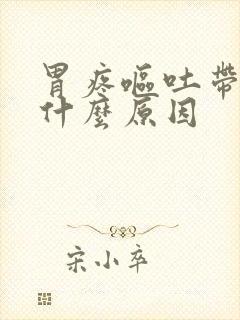 胃疼嘔吐帶
什麽原因
宋小卒